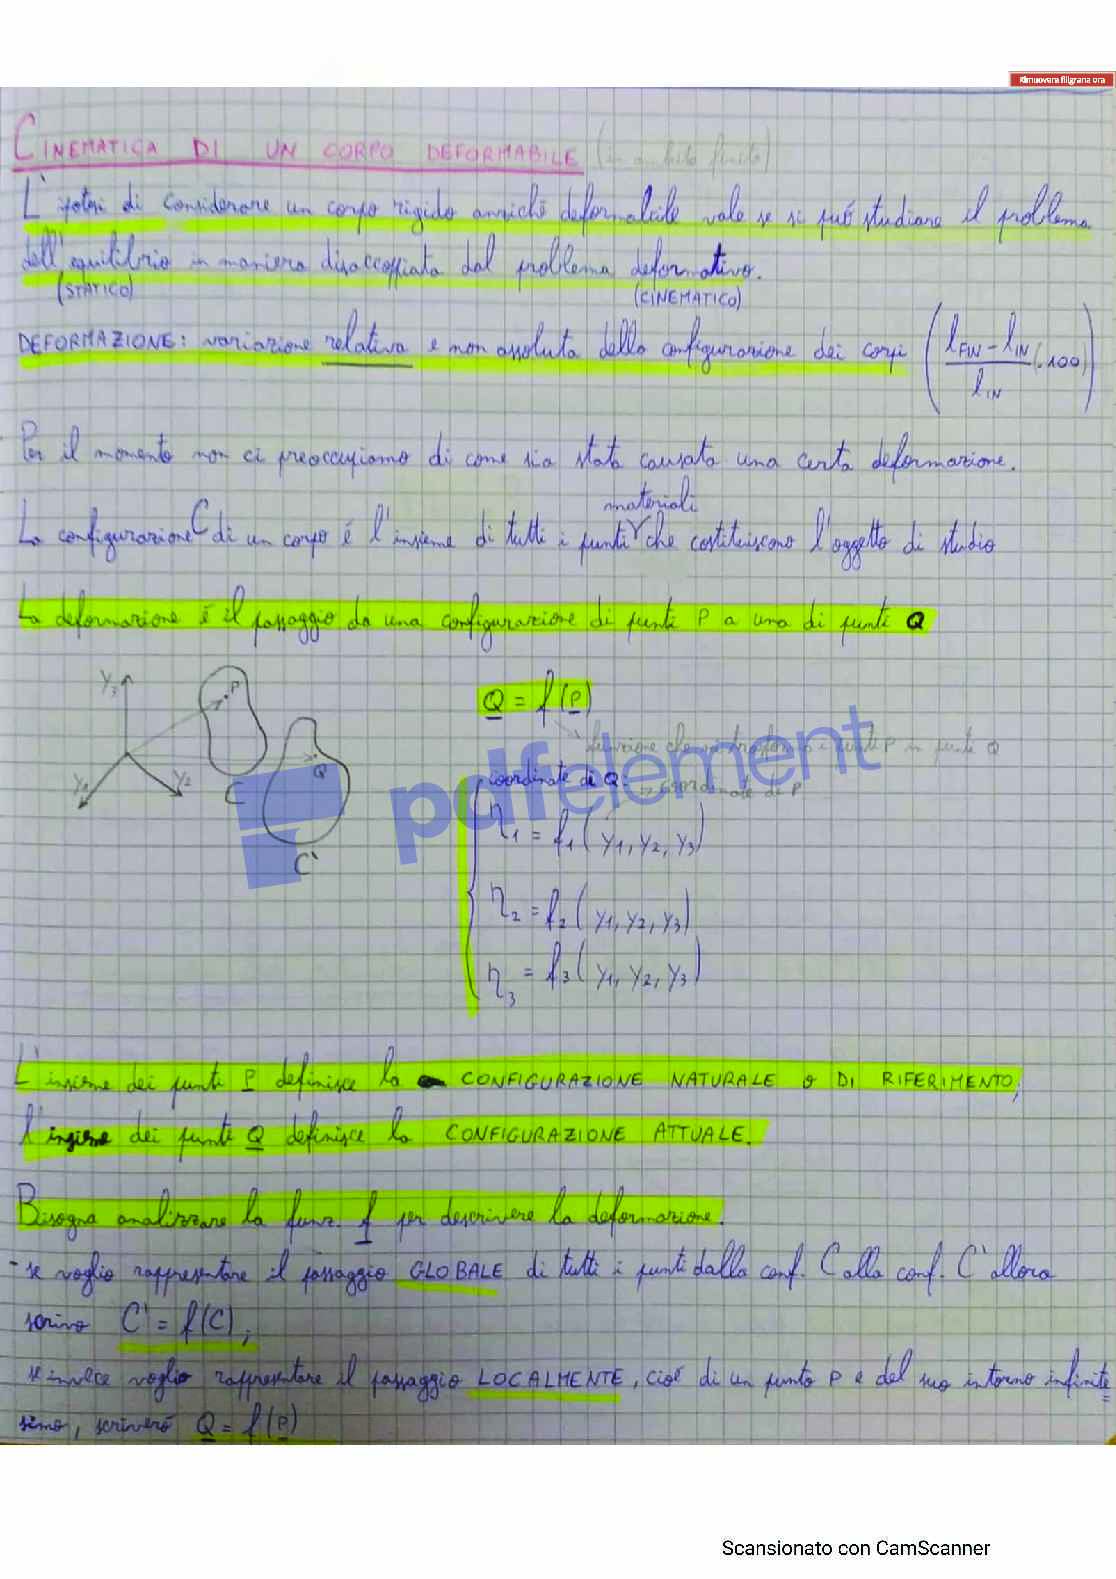 Rimuovere filigrana ora
CINEMATICA DI UN CORPO DEFORMABILE (in ambito finito)
L'ipotesi di considerare un corpo rigido anziché deformabile vale se si può studiare il problema
dell'equilibrio in maniera disaccoppiata dal problema deformativo.
(STATICO) (CINEMATICO)
DEFORMAZIONE: variazione relativa e non assoluta della configurazione dei corpi ( (l_FIN - l_IN) / l_IN (·100) )
Per il momento non ci preoccupiamo di come sia stata causata una certa deformazione.
materiali
La configurazione C di un corpo é l'insieme di tutti i punti che costituiscono l'oggetto di studio
La deformazione é il passaggio da una configurazione di punti P a una di punti Q
Y3 P
Q = f(P)
funzione che mi trasforma i punti P in punti Q
Y1 Y2 C Q
pdfelement
coordinate di Q: → coordinate di P
η1 = f1 (y1, y2, y3)
C'
η2 = f2 (y1, y2, y3)
η3 = f3 (y1, y2, y3)
L'insieme dei punti P definisce la CONFIGURAZIONE NATURALE o DI RIFERIMENTO;
l'insieme dei punti Q definisce la CONFIGURAZIONE ATTUALE.
Bisogna analizzare la funz. f per descrivere la deformazione.
- se voglio rappresentare il passaggio GLOBALE di tutti i punti dalla conf. C alla conf. C' allora
scrivo C' = f(C);
se invece voglio rappresentare il passaggio LOCALMENTE, cioé di un punto P e del suo intorno infinite=
simo, scriveró Q = f(P)
Scansionato con CamScanner